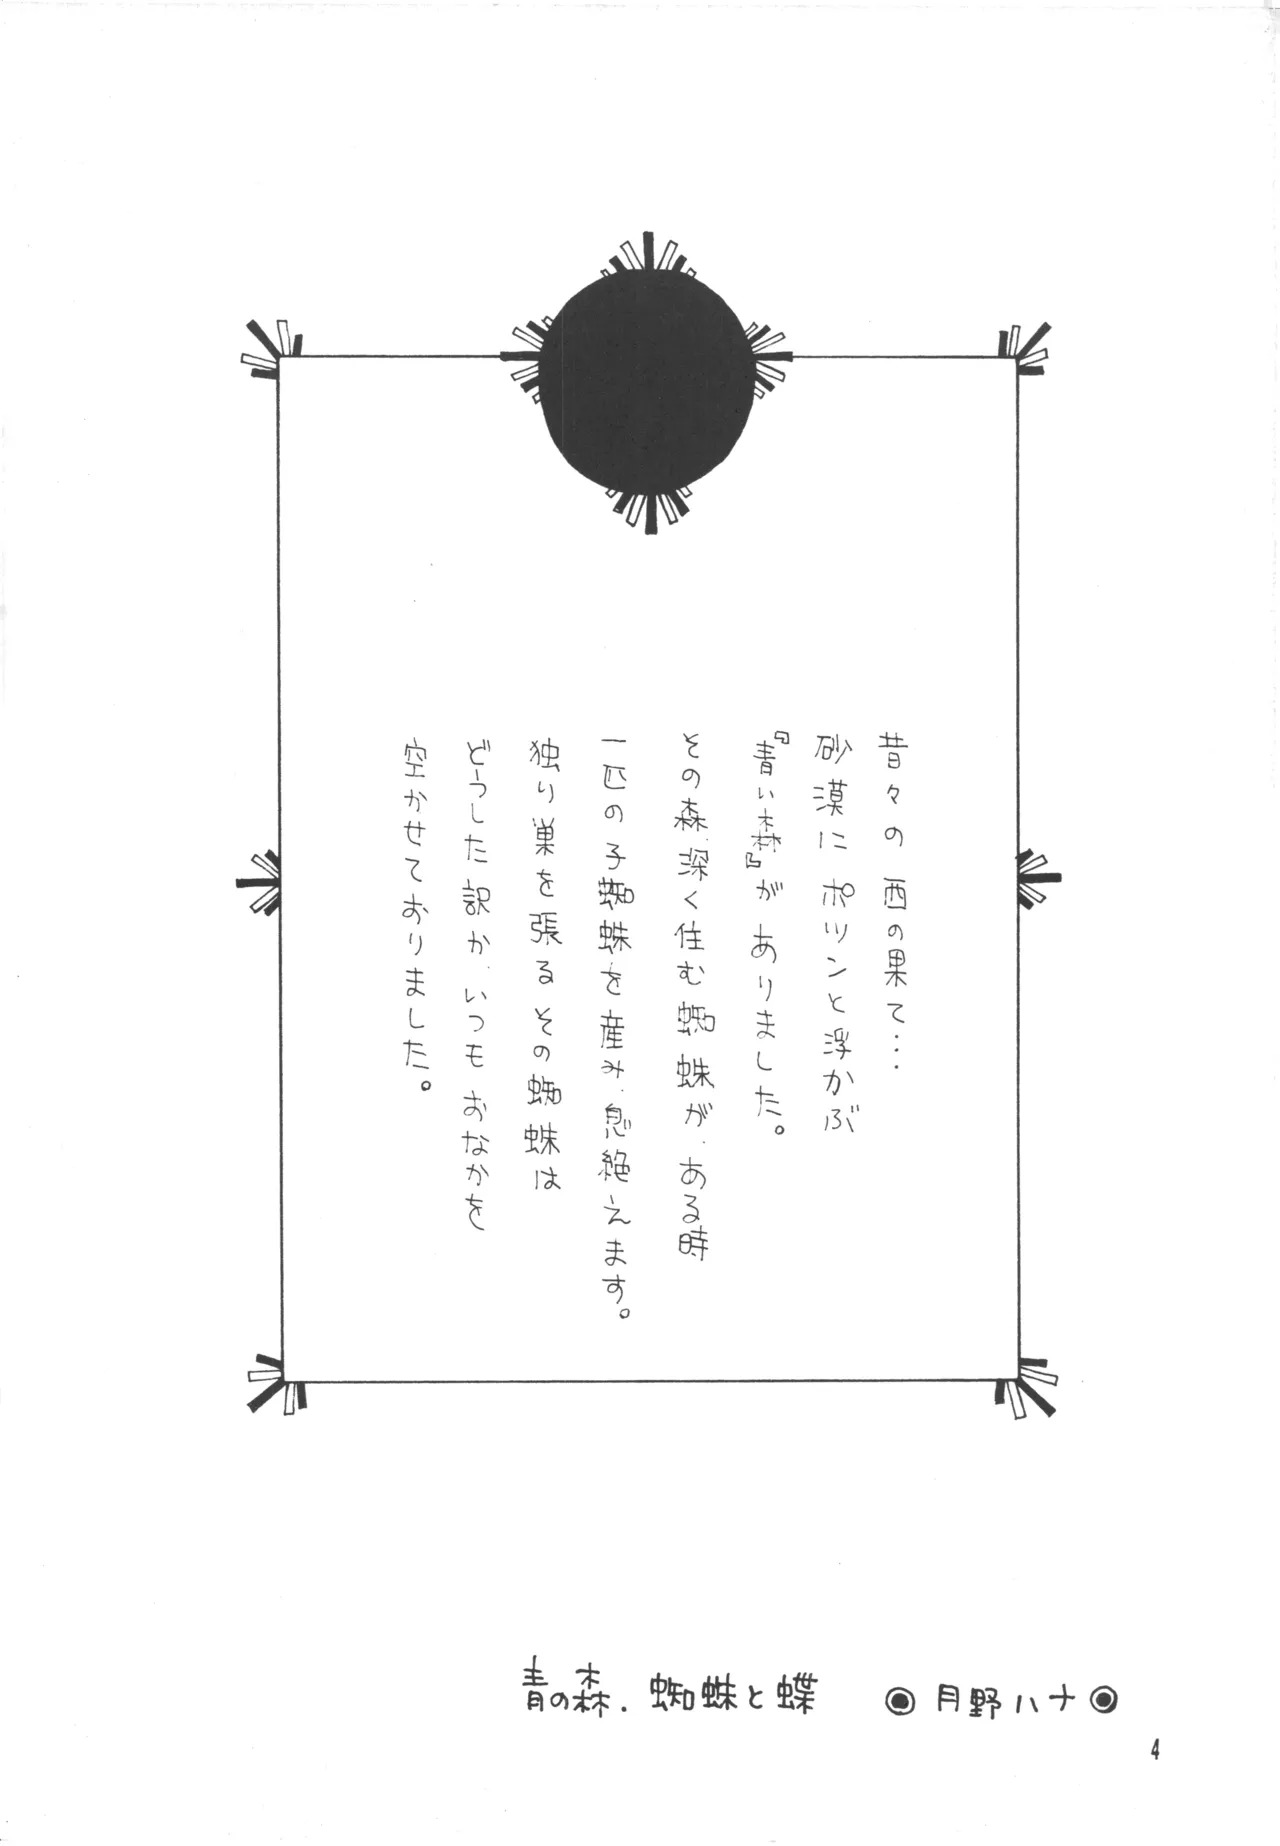 昔々の 西の果て…
砂漠に ポツンと浮かぶ
『青い森』が ありました。
その森、深く住む蜘蛛が、ある時
一匹の子蜘蛛を産み、息絶えます。
独り巣を張る その蜘蛛は
どうした訳か、いつも おなかを
空かせておりました。
青の森、蜘蛛と蝶 ◉ 月野ハナ ◉
4